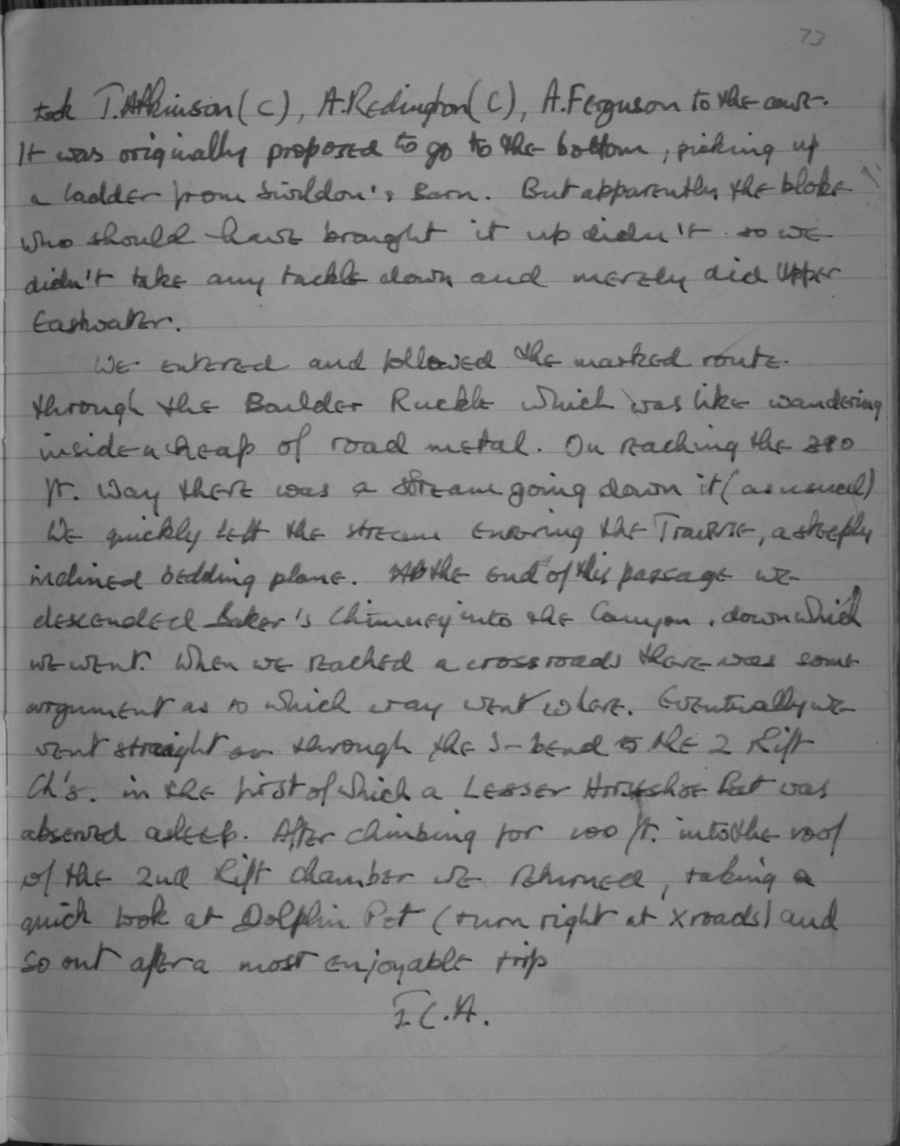 73
took T. Atkinson (C), A. Redington (C), A. Ferguson to the cave.
It was originally proposed to go to the bottom, picking up
a ladder from Swildon's Barn. But apparently the bloke
who should have brought it up didn't so we
didn't take any tackle down and merely did Upper
Eastwater.
We entered and followed the marked route
through the Boulder Ruckle which was like wandering
inside a heap of road metal. On reaching the 380
ft. Way there was a stream going down it (as usual)
We quickly left the stream entering the Traverse, a steeply
inclined bedding plane. At the end of this passage we
descended Baker's Chimney into the Canyon, down which
we went. When we reached a crossroads there was some
argument as to which way went where. Eventually we
went straight on through the S-bend to the 2 Rift
Ch's. in the first of which a Lesser Horseshoe bat was
observed asleep. After climbing for 100 ft. into the roof
of the 2nd Rift chamber we returned, taking a
quick look at Dolphin Pot (turn right at X roads) and
so out after a most enjoyable trip
I.C.A.